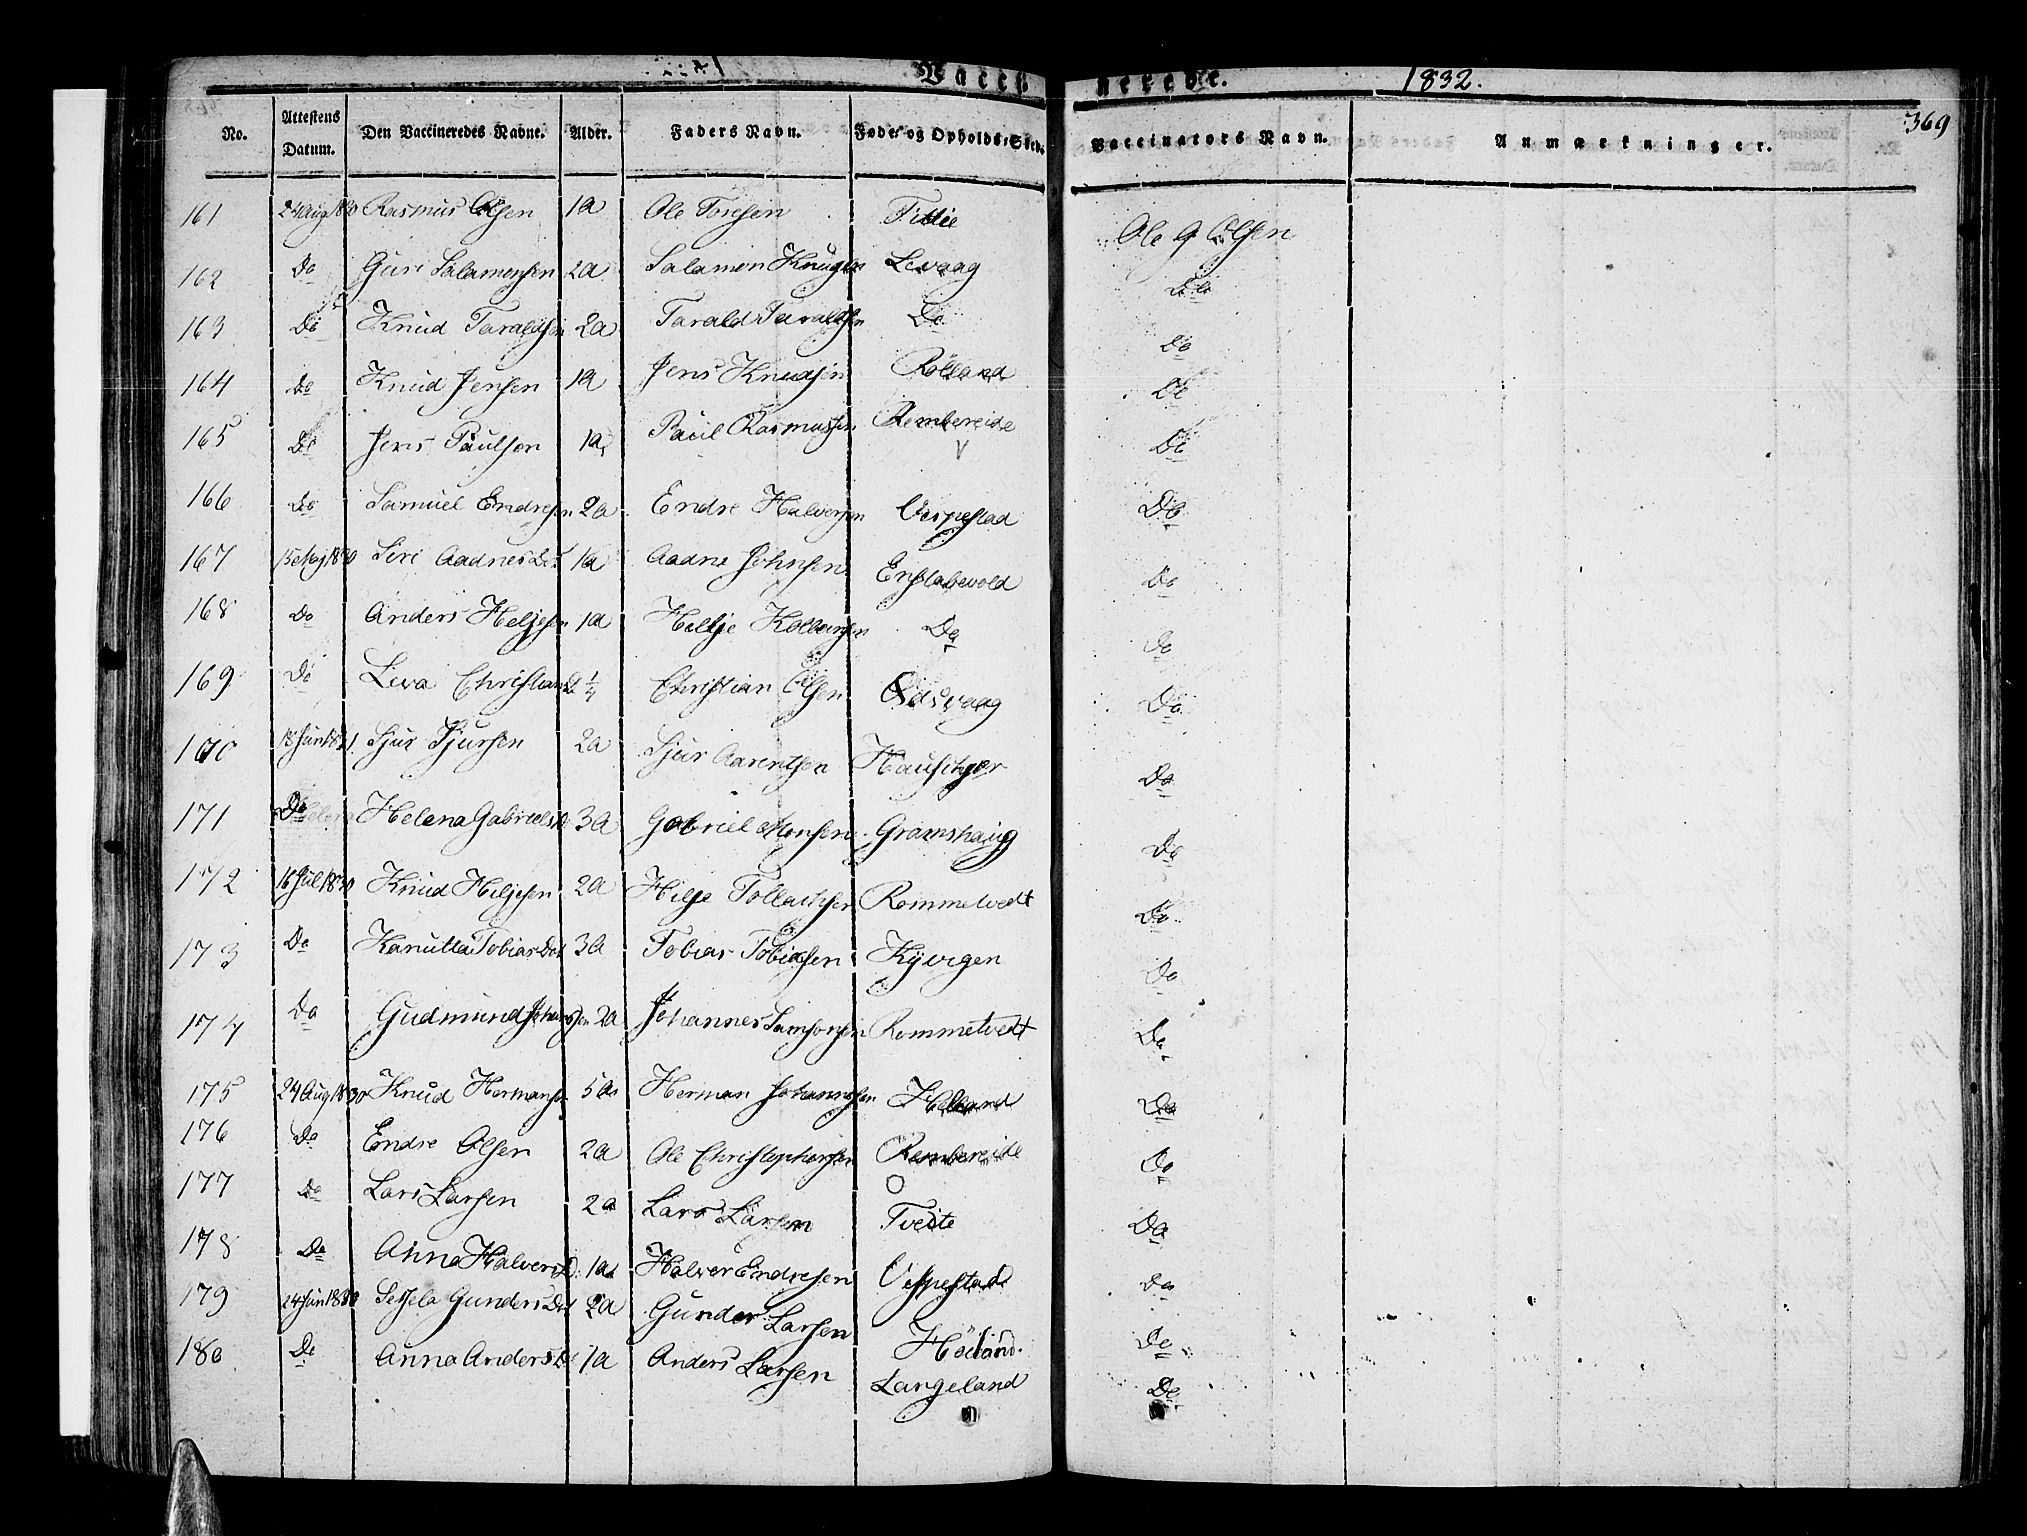 Vacci nerede. 1832.
369
No. Attestens Datum. Den Vaccineredes Navne. Alder. Faders Navn. Føde- og Opholds-Sted. Vaccinators Navn. Anmærkninger.
161 24 Aug 1830 Rasmus Olsen 1a Ole Toresen Ole G Olsen
162 Do Guri Salamonsen 2a Salamon Levaag Do
163 Do Knud Taraldsen 2a Tarald Taraldsen Do Do
164 Do Knud Jensen 1a Jens Knudsen Rölland Do
165 Do Jens Paulsen 1a Paul Rasmussen Rembereide Do
166 Do Samuel Endresen 2a Endre Halversen Vespestad Do
167 15 Maj 1830 Siri Aadnes Dat 1a Aadne Johnsen Do
168 Do Anders Heljesen 1a Helje Do Do
169 Do Liva Christians 2 1/4 Christian Olsen Do
170 18 Jun 1831 Sjur Sjursen 2a Sjur Aarentsen Do
171 Do Helena Gabriels D 3a Gabriel Monsen Gramshaug Do
172 16 Jul 1830 Knud Heljesen 2a Helje Rommetvedt Do
173 Do Kanutta Tobias Dat 3a Tobias Tobiasen Kyvigen Do
174 Do Gudmund Johannessen 2a Johannes Samsonsen Rommetvedt Do
175 24 Aug 1830 Knud Hermansen 5a Herman Johannesen Do
176 Do Endre Olsen 2a Ole Christophersen Rembereide Do
177 Do Lars Larsen 2a Lars Larsen Tveite Do
178 Do Anna Halvers D. 1a Halver Endresen Vespestad Do
179 24 Jun 1830 Sessela Gunders Dat 2a Gunder Larsen Do
180 Do Anna Anders D 1a Anders Larsen Langeland Do